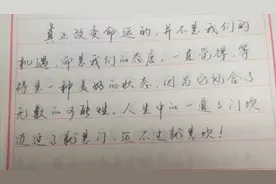 真正改变命运的，并不是我们的
机遇，而是我们的态度。一直觉得，等
待是一种美好的状态，因为它包含了
无数的可能性。人生中的一道道门坎
迈过了就是门，迈不过就是坎！